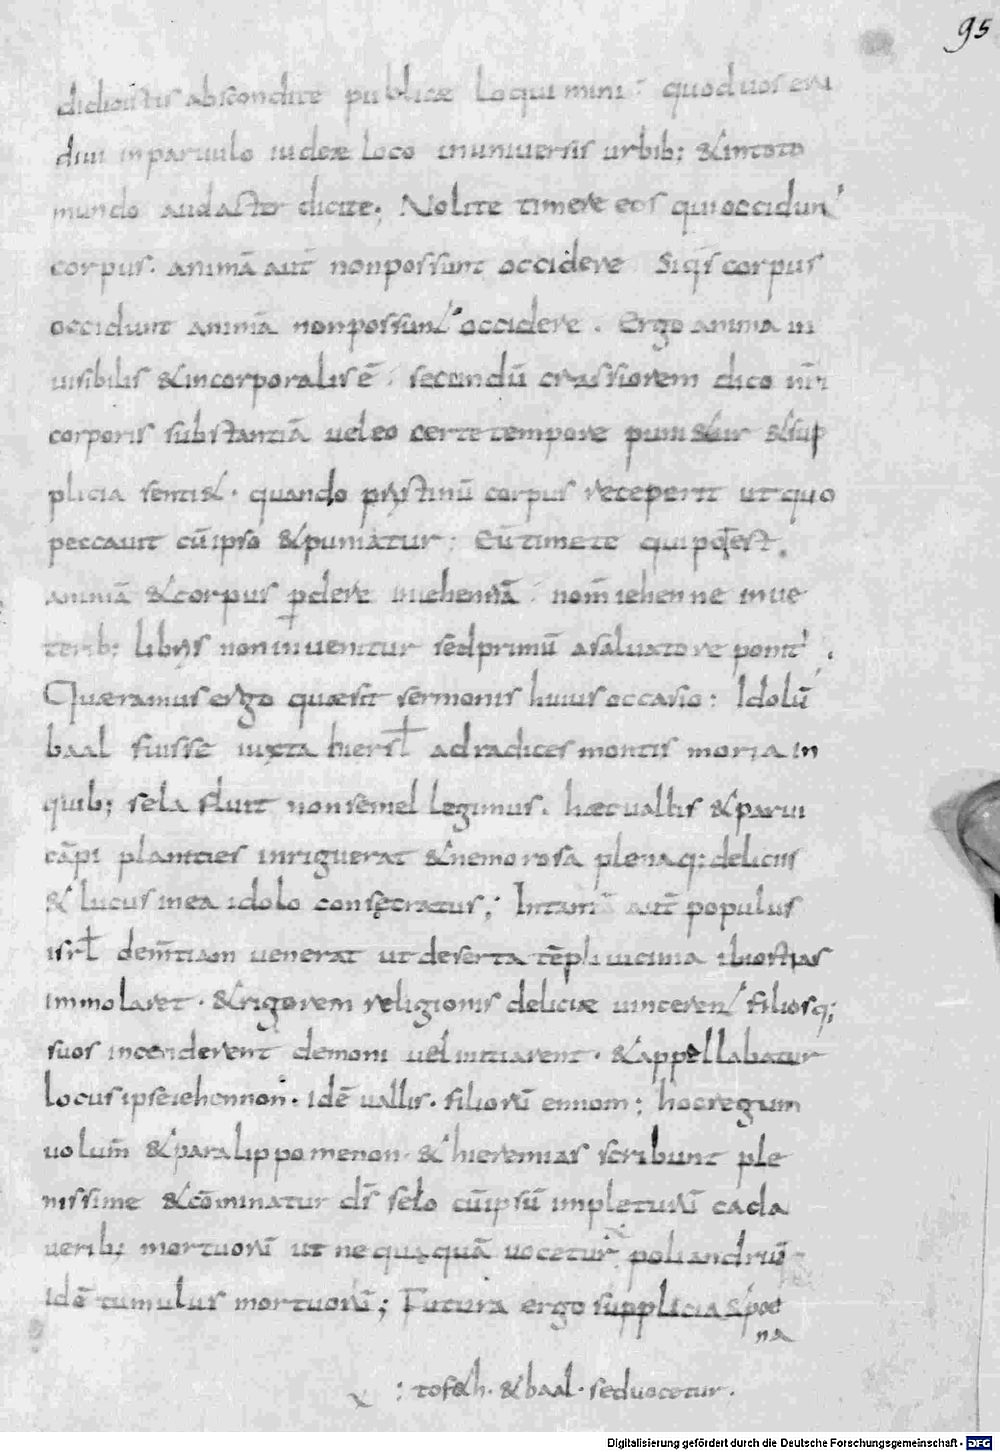 95
didicistis abscondite publicae loquimini : quod uos eru
diui in paruulo iudeae loco in uniuersis urbib; & in toto
mundo audacter dicite; Nolite timere eos qui occidunt
corpus. animā aut̄ non possunt occidere Si q̄s corpus
occidunt animā non possunt occidere . Ergo anima in
uisibilis & incorporalis ē : secundū crassiorem dico nr̄i
corporis substantiā uel eo certe tempore puni&ur & sup
plicia senti& . quando pristinū corpus receperit ut quo
peccauit cū ipso & puniatur ; Eū timete qui pot̄est
animā & corpus ꝑdere in iehennā : nom̄ iehennę in ue
terib; libris non inuenitur sed primū a saluatore ponit᾽ ;
Quaeramus ergo quae sit sermonis huius occasio : Idolū
baal fuisse iuxta hierſl̄ ad radices montis moria in
quib; sela fluit non semel legimus . haec uallis & parui
cāpi planities inriguerat & nemorosa plenaq: deliciis
& lucus in ea idolo consęcratus ; In tantā aut̄ populus
isrl̄ dem̄tiam uenerat ut deserta tēpli uicinia ibi ostias
immolaret . & rigorem religionis deliciae uincerent filiosq;
suos incenderent demoni uel initiarent . & appellabatur
locus ipse iehennon . idē uallis . filiorū ennom ; hoc regum
uolum̄ & paralippomenon . & hieremias scribunt ple
nissime & cōminatur dr̄ se lo cū ipsū impleturū cada
uerib; mortuorū ut nequęquā uocetur poliandriū
idē tumulus mortuorū ; Futura ergo supplicia & poe
na
: tof&h . & baal . sed uocetur .
Digitalisierung gefördert durch die Deutsche Forschungsgemeinschaft - DFG